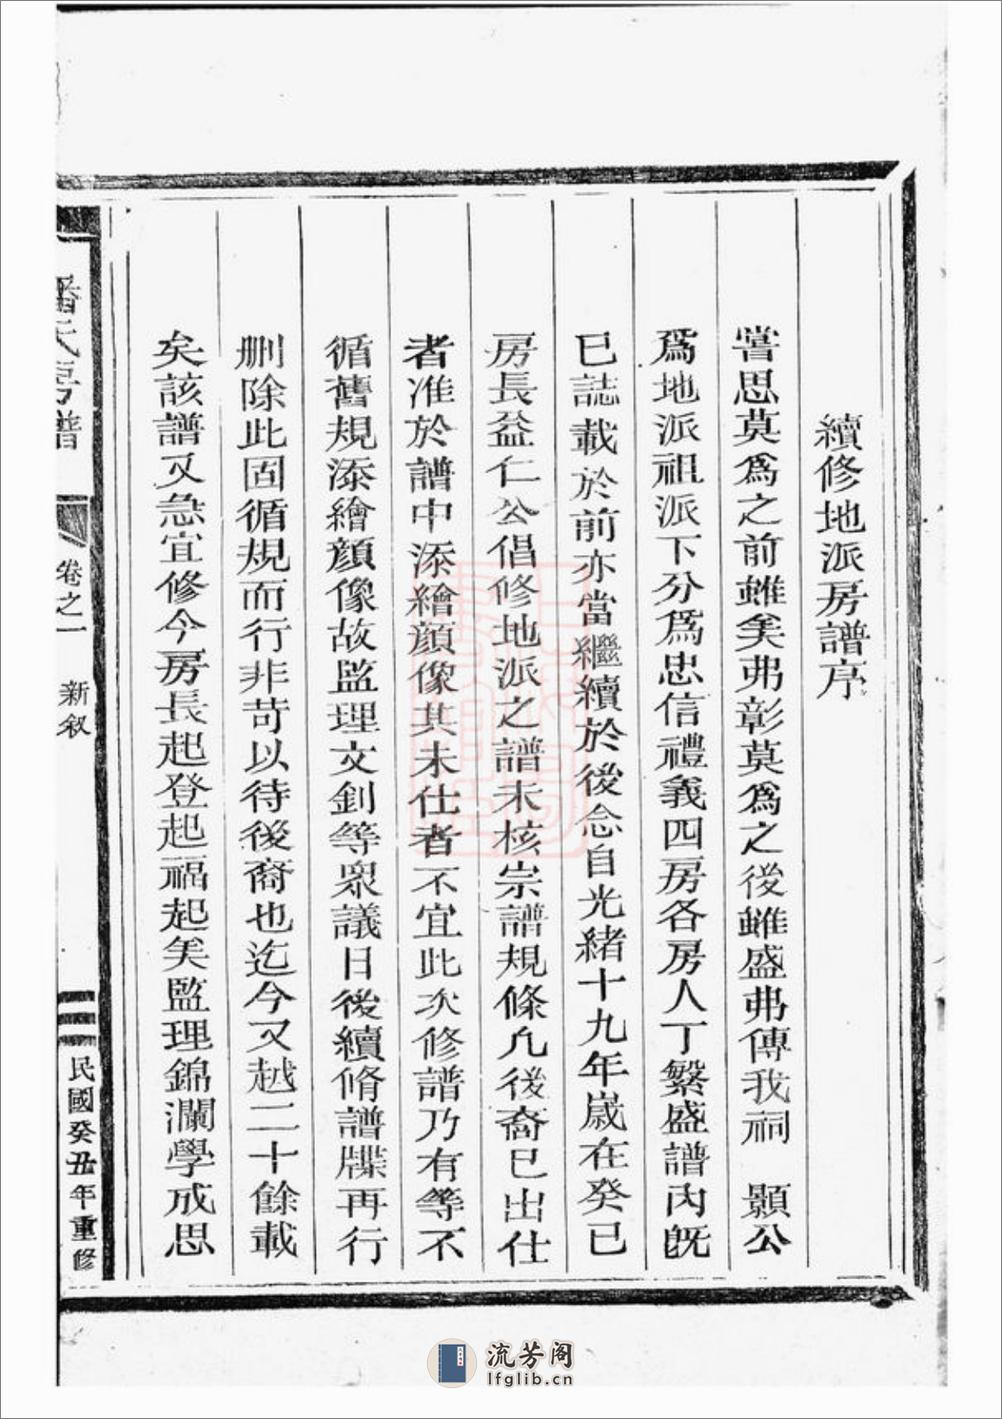 續修地派房譜序
嘗思莫爲之前雖美弗彰莫爲之後雖盛弗傳我祠 顥公
爲地派祖派下分爲忠信禮義四房各房人丁繁盛譜內旣
已誌載於前亦當繼續於後念自光緒十九年歲在癸巳
房長益仁公倡修地派之譜未核宗譜規條凡後裔已出仕
者准於譜中添繪顔像其未仕者不宜此次修譜乃有等不
循舊規添繪顔像故監理文釗等眾議日後續脩譜牒再行
刪除此固循規而行非苛以待後裔也迄今又越二十餘載
矣該譜又急宜修今房長起登起福起美監理錦瀾學戒思
潘氏房譜
卷之一
新叙
民國癸丑年重修
流芳阁
lfglib.cn